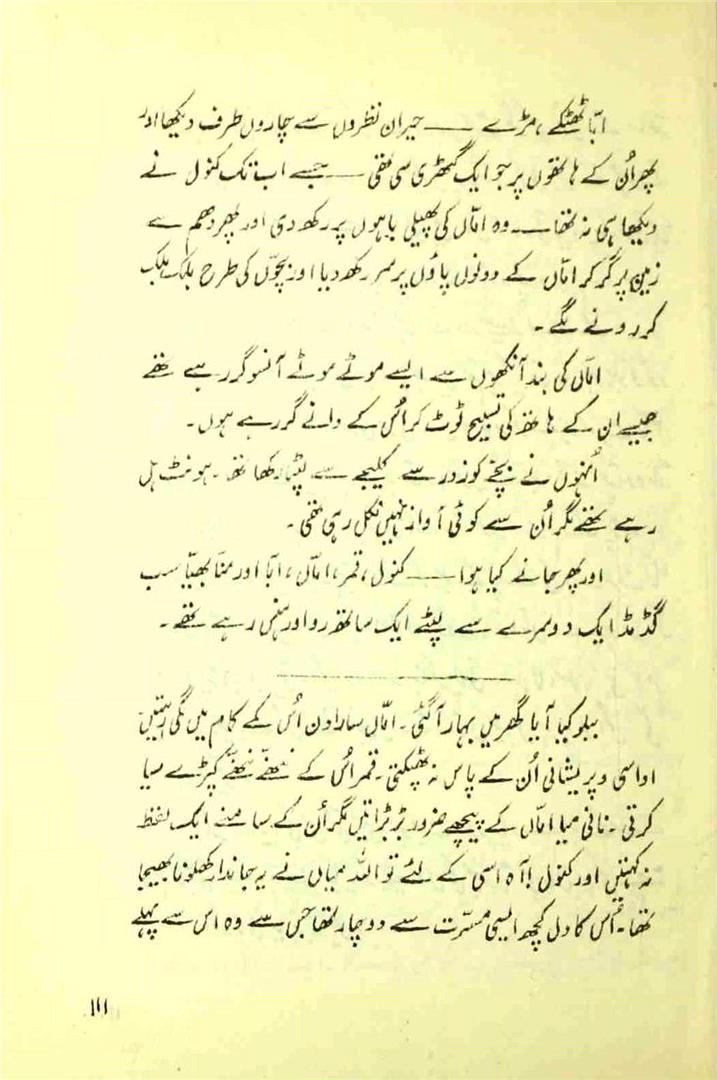 ابّا ٹھٹکے، مڑے ــــ حیران نظروں سے چاروں طرف دیکھا اور
پھر اُن کے ہاتھوں پر جو ایک گٹھڑی سی تھی ــــ جسے اب تک کنول نے
دیکھا ہی نہ تھا ــــ وہ امّاں کی پھیلی باہوں پر رکھ دی اور پھر دھم سے
زمین پر گر کر امّاں کے دونوں پاؤں پر سر رکھ دیا اور بچّوں کی طرح بلک بلک
کر رونے لگے۔
امّاں کی بند آنکھوں سے ایسے موٹے موٹے آنسو گر رہے تھے
جیسے ان کے ہاتھ کی تسبیح ٹوٹ کر اُس کے دانے گر رہے ہوں۔
اُنہوں نے بچّے کو زور سے کلیجے سے لپٹا رکھا تھا۔ ہونٹ ہل
رہے تھے مگر اُن سے کوئی آواز نہیں نکل رہی تھی۔
اور پھر جانے کیا ہوا ــــ کنول، قمر، امّاں، ابّا اور منّا بھیّا سب
گڈ مڈ ایک دوسرے سے لپٹے ایک ساتھ رو اور ہنس رہے تھے۔
ببلو کیا آیا گھر میں بہار آ گئی۔ امّاں سارا دن اُس کے کام میں لگی رہتیں
اداسی و پریشانی اُن کے پاس نہ پھٹکتی۔ قمر اُس کے ننھّے ننھّے کپڑے سیا
کرتی۔ نانی میا امّاں کے پیچھے ضرور بڑبڑاتیں مگر اُن کے سامنے ایک لفظ
نہ کہتیں اور کنول! آہ اسی کے لئے تو اللہ میاں نے یہ جاندار کھلونا بھیجا
تھا۔ اُس کا دل کچھ ایسی مسرّت سے دوچار تھا جس سے وہ اس سے پہلے
۱۱۱